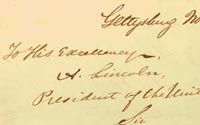 Gettysburg No
To His Excellency,
A. Lincoln,
President of the Unit
Sir